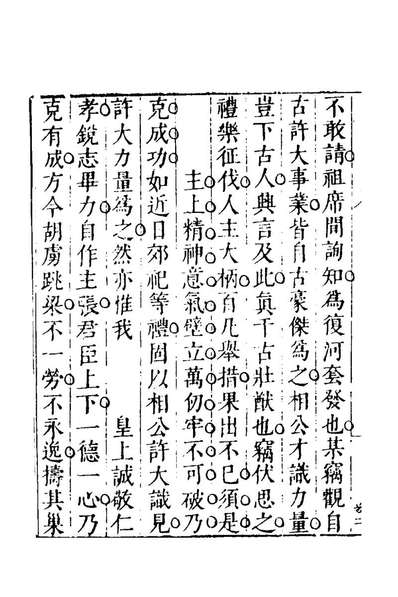 不敢請祖席間詢知為復河套發也某竊觀自
古許大事業皆自古豪傑為之相公才識力量
豈下古人興言及此眞千古壯猷也竊伏思之
禮樂征伐人主大柄百凡舉措果出不已須是
主上精神意氣壁立萬仞牢不可破乃
克成功如近日郊祀等禮固以相公許大識見
許大力量為之然亦惟我　皇上誠敬仁
孝銳志畢力自作主張君臣上下一德一心乃
克有成方今胡虜跳梁不一勞不永逸擣其巢